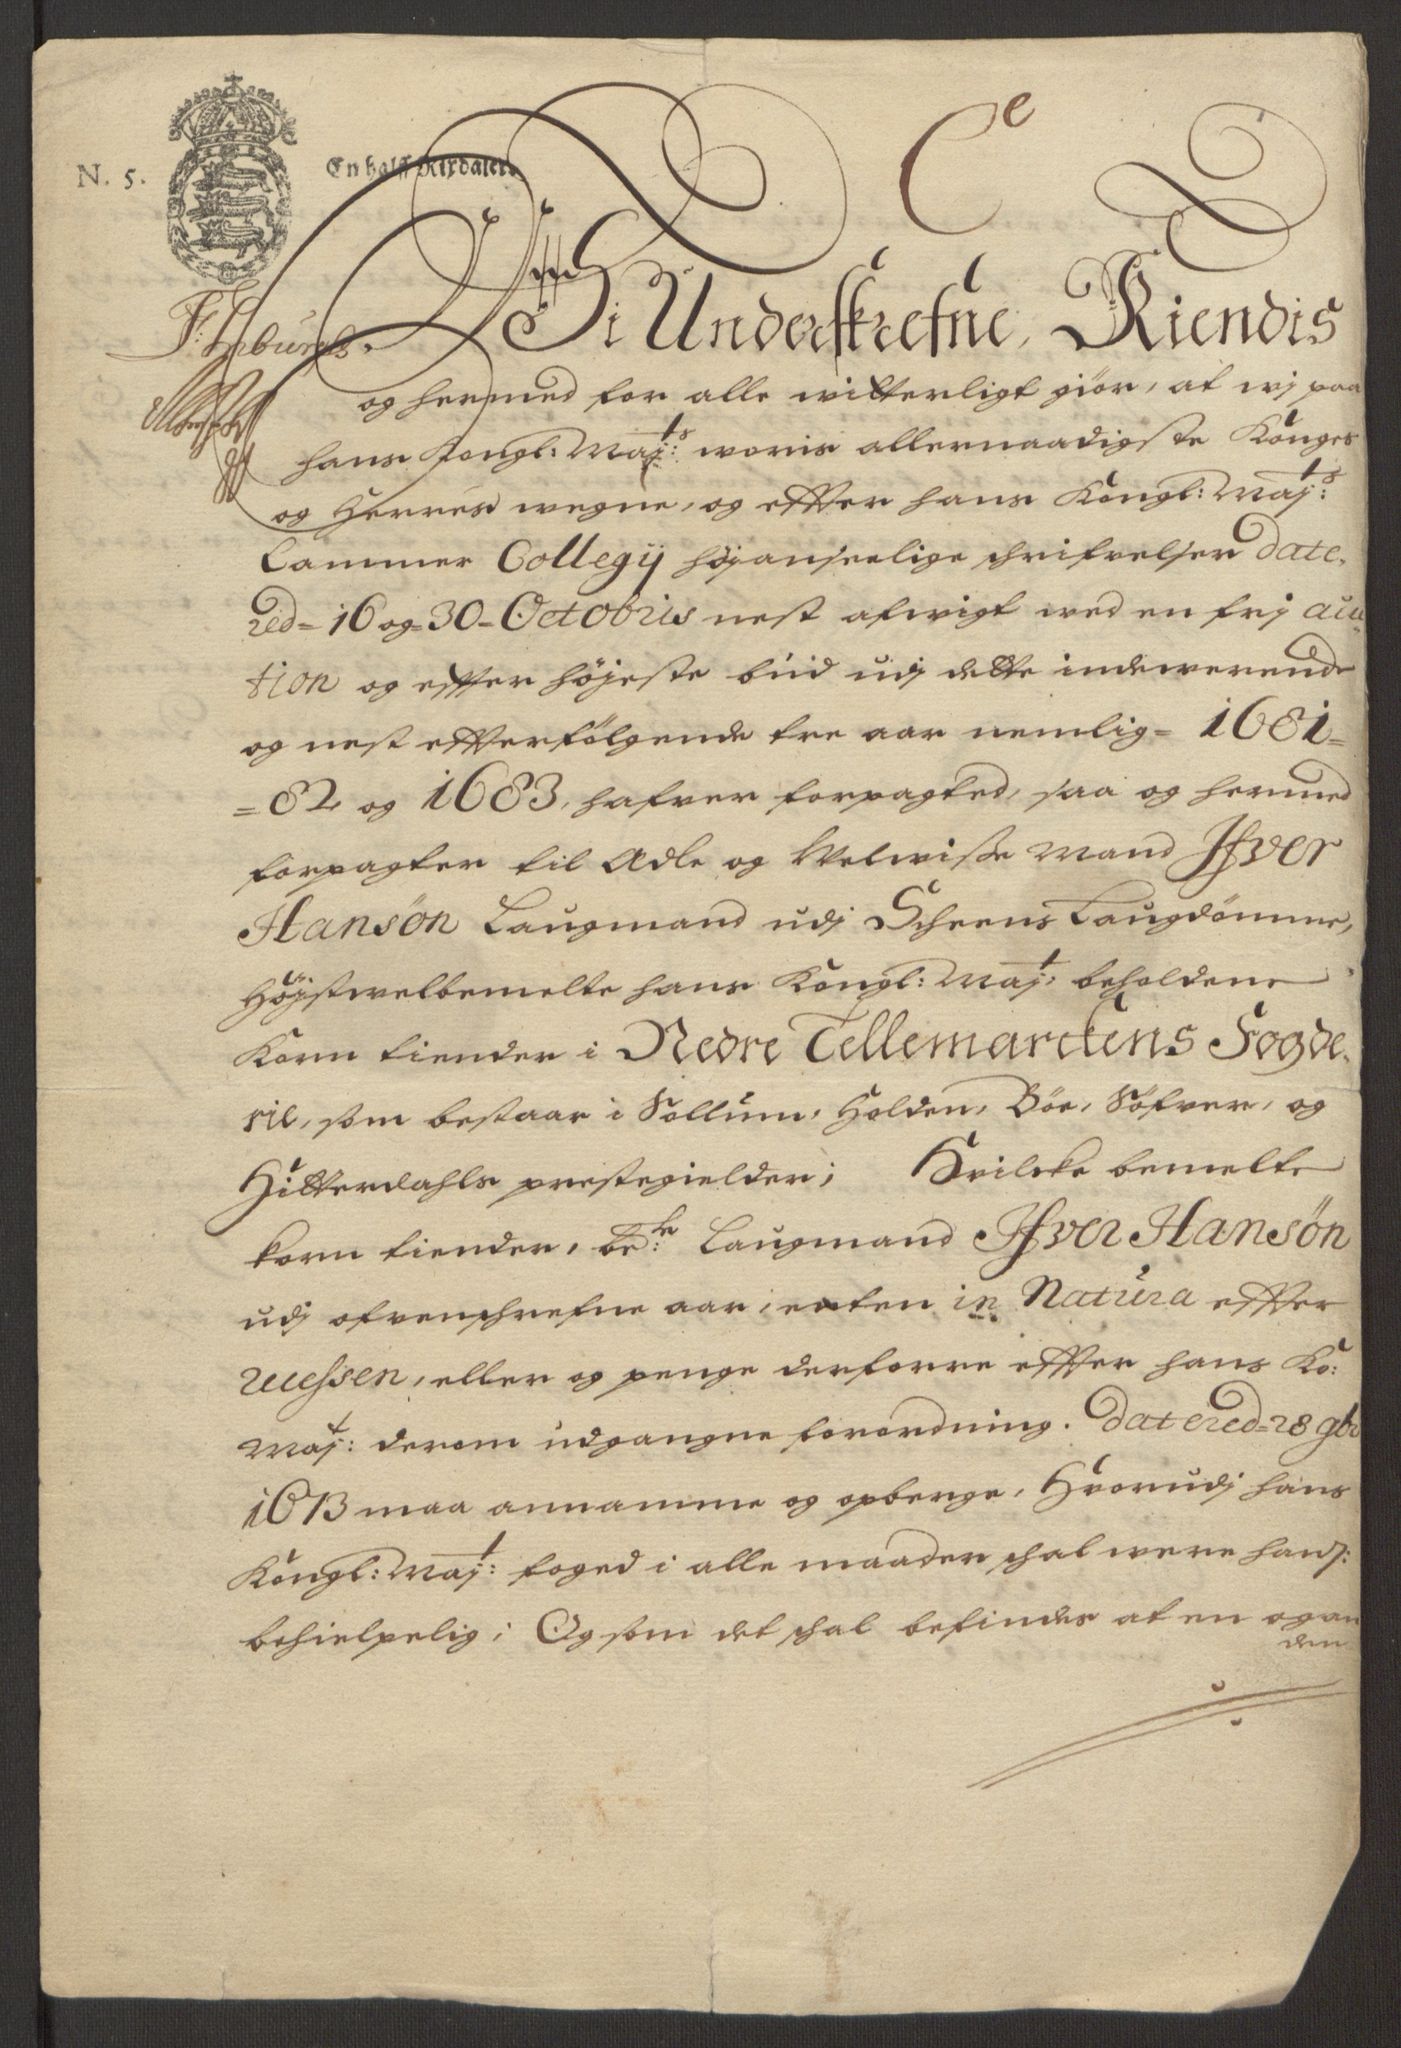 Ce
N. 5.
En halff Rixdaler
Wi Underskrefne, Kiendis
og hermed for alle witterligt giör, at wj paa
hans Kongl: Maj:ts woris allernaadigste Konges
og Herres wegne, og effter hans Kongl: Maj:ts
Cammer Collegij höjanseelige schrifvelser date-
red= 16 og= 30= Octobris nest afvigt wed en frj auc-
tion og effter höjeste bud udj dette indewerende
og nest effterfölgende tre aar nemlig= 1681=
=82 og 1683, hafver forpagted, saa og hermed
forpagter til Adle og Welwise Mand Ifver
Hansøn Laugmand udj Scheens Laugdömme,
Höjstwelbemelte hans Kongl: Maj:t beholdene
Korn tiender i Nedre Tellemarckens Fogde-
rie, som bestaar i Sollum, Holden, Böe, Söfver, og
Hitterdahls prestegielder; Hvilcke bemelte
korn tiender, be:te Laugmand Ifver Hansøn
udj ofvenschrefne aar, enten in Natura effter
ruessen, eller og penge derforre effter hans Ko:
Maj:t derom udgangne forordning. datered= 28 9br
1673 maa annamme og opberge, Hvorudj hans
Kongl: Maj:t foged i alle maader schal were ham
behielpelig; Og som det schal befindes at en og an
den